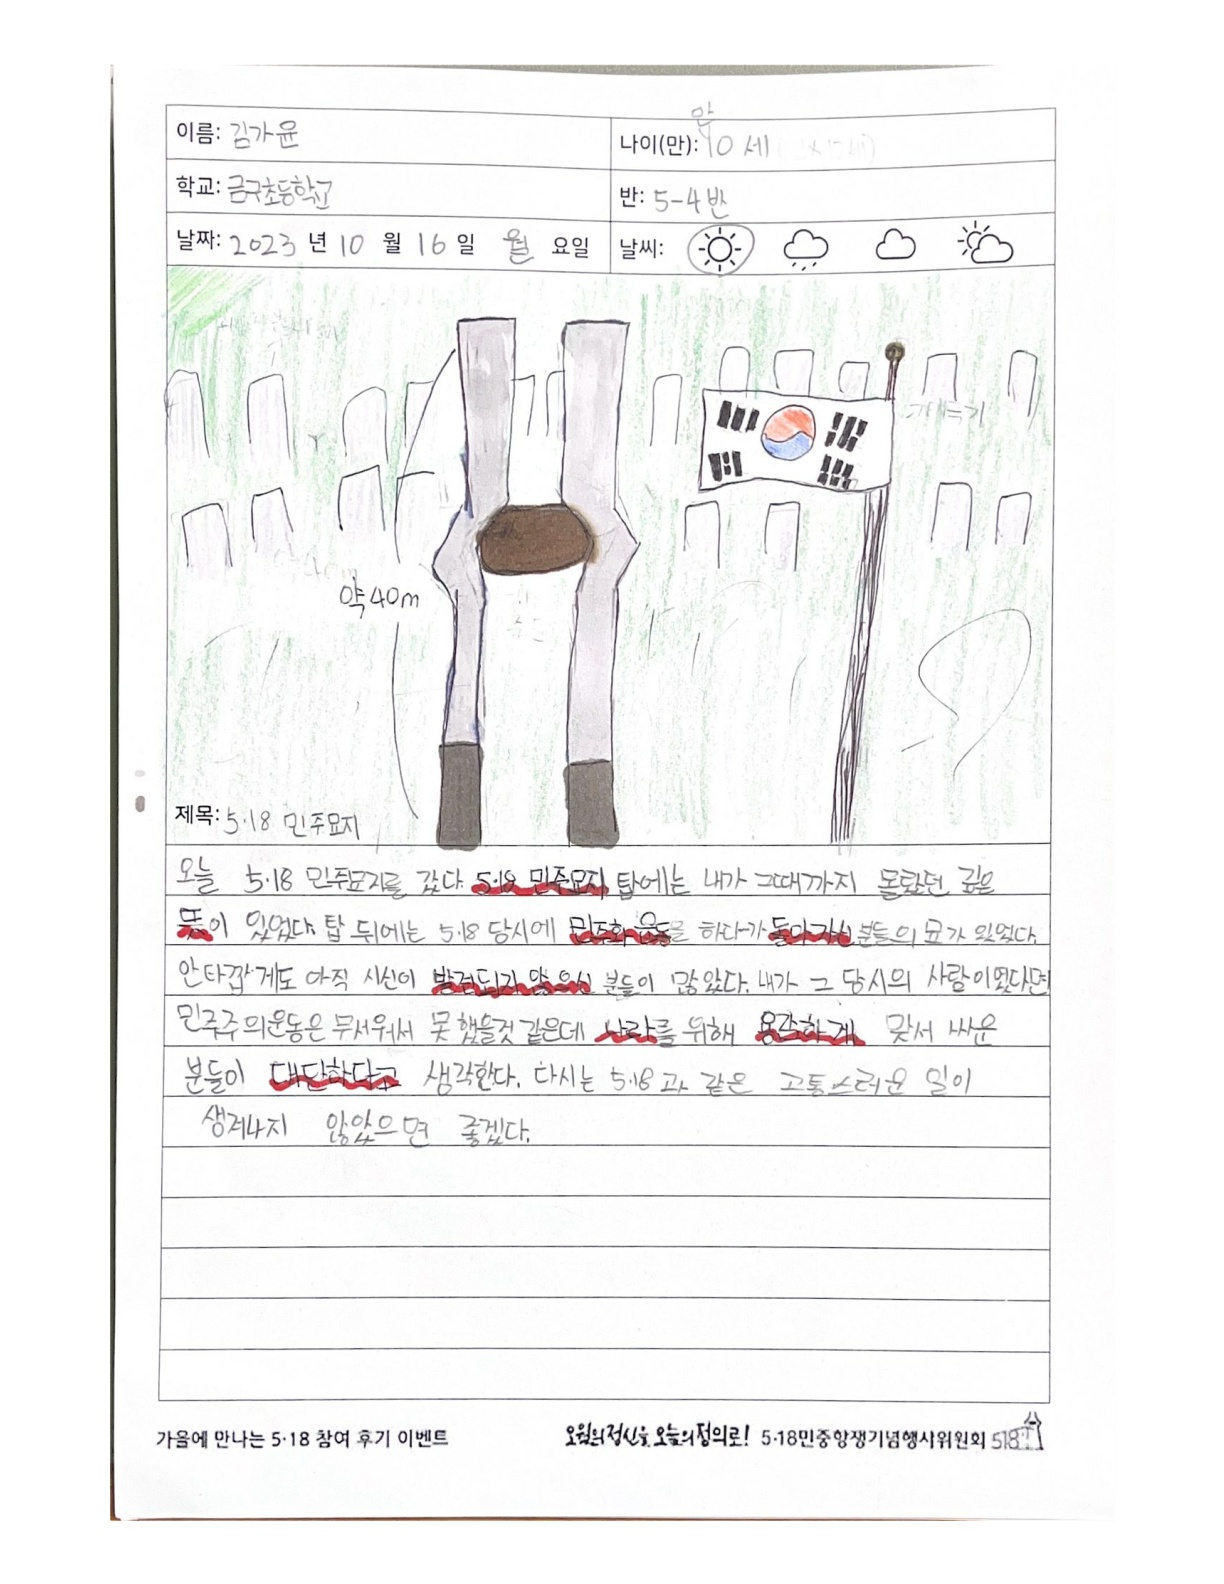 이름: 김가윤
나이(만): 만 10세
학교: 금구초등학교
반: 5-4반
날짜: 2023 년 10 월 16 일 월 요일
날씨:
약 40m
제목: 5·18 민주묘지
오늘 5·18 민주묘지를 갔다. 5·18 민주묘지 탑에는 내가 그때까지 몰랐던 깊은
뜻이 있었다. 탑 뒤에는 5·18 당시에 민주화 운동를 하다가 돌아가신 분들의 묘가 있었다.
안타깝게도 아직 시신이 발견되지 않으신 분들이 많았다. 내가 그 당시의 사람이였다면
민주주의운동은 무서워서 못했을것 같은데 나라를 위해 용감하게 맞서 싸운
분들이 대단하다고 생각한다. 다시는 5·18 과 같은 고통스러운 일이
생겨나지 않았으면 좋겠다.
가을에 만나는 5·18 참여 후기 이벤트
오월의 정신을 오늘의 정의로! 5·18민중항쟁기념행사위원회 518